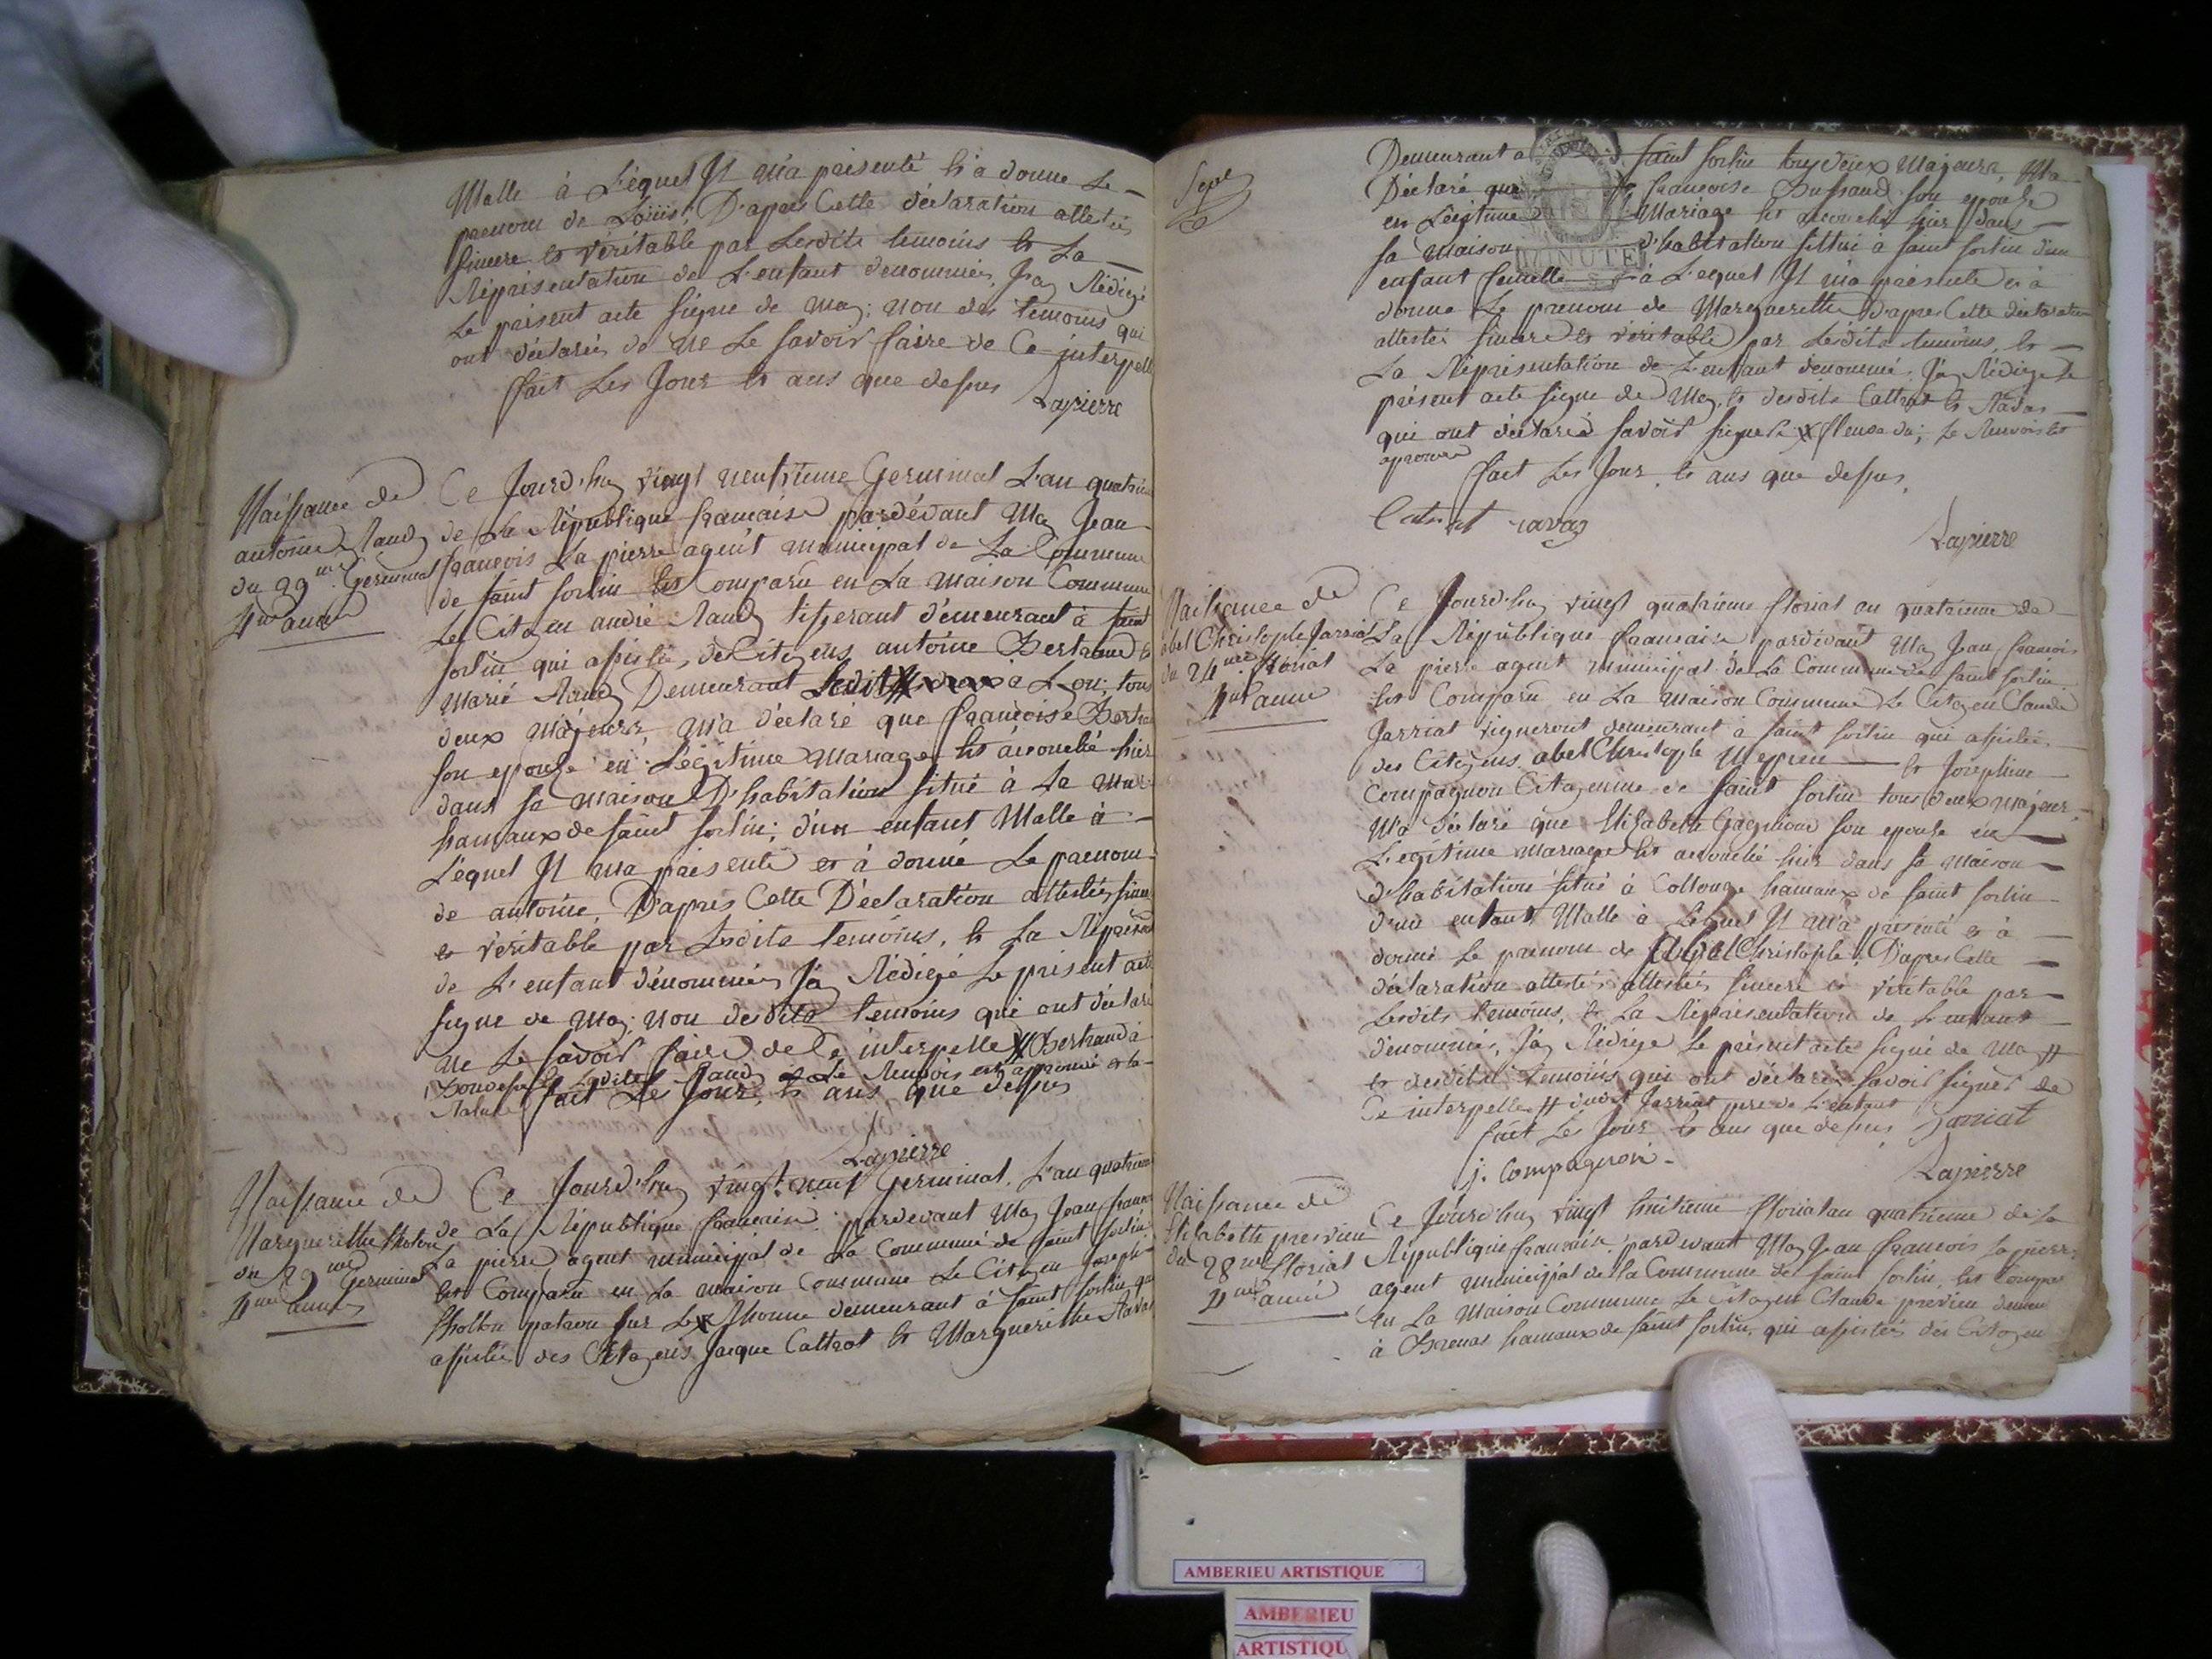 Malle à Léquel Jl m'a présenté et a donné Le
prenom de Louis. D'apres Cette déclaration attestée
sincere et véritable par Lesdits temoins et La
Réprésentation de L'enfant denommée, J'ay Rédiegé
Le present acte signe de Moy; non des temoins qui
ont déclarés de ne Le savoir faire de Ce interpellé
fait Les Jour et ans que dessus
Lapierre
Naissance de
antoine Naudy
du 29me Germinal
4me année
Ce Jourd'huy vingt neuvieme Germinal L'an quatrieme
de La République francaise pardévant Moy Jean
francois La pierre agent municipal de La Commune
de saint sorlin est Comparu en La maison Commune
Le Citoyen andré Naudy tisserant demeurant à saint
sorlin qui assistée, de Citoyens antoine Bertrand et
Marie Naudy Demeurant Ledit à Loui, tous
deux majeurs, M'a déclaré que francoise Bertrand
son epouse en Légitime Mariage est accouché hier
dans sa maison D'habitation situé à La
hamaux de saint sorlin; d'un enfant Malle à
Léquel Jl m'a présenté et à donné Le prenom
de antoine, D'apres Cette Déclaration attestée sincere
et véritable par Lesdits temoins, et La Réprésent
de L'enfant dénommée J'ay Rédiegé Le présent acte
signe de Moy; non desdits temoins qui ont déclaré
ne Le savoir faire de Ce interpellé # Bertrand à
Ladite Naudy Le Renvois est approuvé
fait Les Jour, et ans que dessus
Lapierre
Naissance de
Marguerithe
du 29me Germinal
4me année
Ce Jourd'huy vingt neuf Germinal, L'an quatrieme
de La République francaise pardevant Moy Jean francois
La pierre agent municipal de La Commune de saint sorlin
est Comparu en La maison Commune Le Citoyen Joseph
patron sur Le Rhonne demeurant à saint sorlin qui
assistée des Citoyens Jacque Cattrat et Marguerithe Navas
Sept
Demeurant a saint sorlin tous deux Majeurs, Ma
Déclaré que francoise Dussaud son epouse
en Légitime Mariage est accouchée hier dans
sa maison d'habitation situé à saint sorlin d'un
MINUTE
enfant femelle à L'equel Jl m'a présenté et à
donné Le prenom de Marguerithe D'apres Cette déclaration
attestée sincere et véritable par Lesdits temoins, et
La Réprésentation de L'enfant dénommé, J'ay Rédiegé Le
présent acte signe de Moy, et desdits Cattrat et Navas
qui ont déclaré savoir signer Le Renvois est
aprouvé
fait Les Jour, et ans que dessus,
Catrat navas
Lapierre
Naissance de
abel Christophe Jarriat
du 24me floriat
4me année
Ce Jourd'huy vingt quatrieme floriat an quatrieme de
La République francaise pardévant Moy Jean francois
La pierre agent municipal de La Commune de saint sorlin
est Comparu en La Maison Commune Le Citoyen Claude
Jarriat vigneront demeurant à saint sorlin qui assistée
des Citoyens abel Christophe et Josephine
Compagnon Citoyenne de saint sorlin tous deux majeur,
M'a déclaré que Elisabeth son epouse en
Légitime mariage est accouché hier dans sa maison
d'habitation situé à Collonge hamaux de saint sorlin
d'un enfant Malle à Lequel Jl m'a présenté et à
donné Le prenom de abel Christophe, D'apres Cette
déclaration attestée attestée sincere et véritable par
Lesdits temoins, et La Réprésentation de L'enfant
dénommée, J'ay Rédiege Le présent acte signé de Moy #
et desdits temoins qui ont déclaré savoir signer de
Ce interpellé # dudit Jarriat pere de L'enfant
fait Les Jour et ans que dessus Jarriat
j. Compagnon
Lapierre
Naissance de
Elisabeth previeu
du 28me floriat
4me année
Ce Jourd'huy vingt huitieme floriat an quatrieme de la
République francaise, pardevant Moy Jean francois Lapierre
agent municipal de la Commune de saint sorlin, est Comparu
en La Maison Commune Le Citoyen Claude prévieu demeu
à hamaux de saint sorlin, qui assistée des Citoyen
AMBERIEU ARTISTIQUE
AMBERIEU
ARTISTIQU